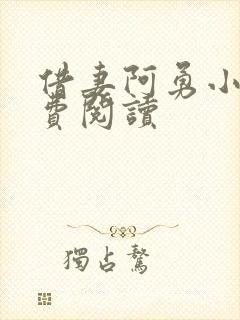 借妻阿勇小
費閱讀
獨占鰲